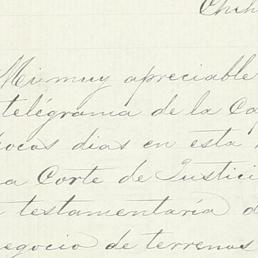 Chih
Mi muy apreciable
telégrama de la Ca
pocos dias en esta
a Corte de Justici
testamentaría d
negocio de terrenos